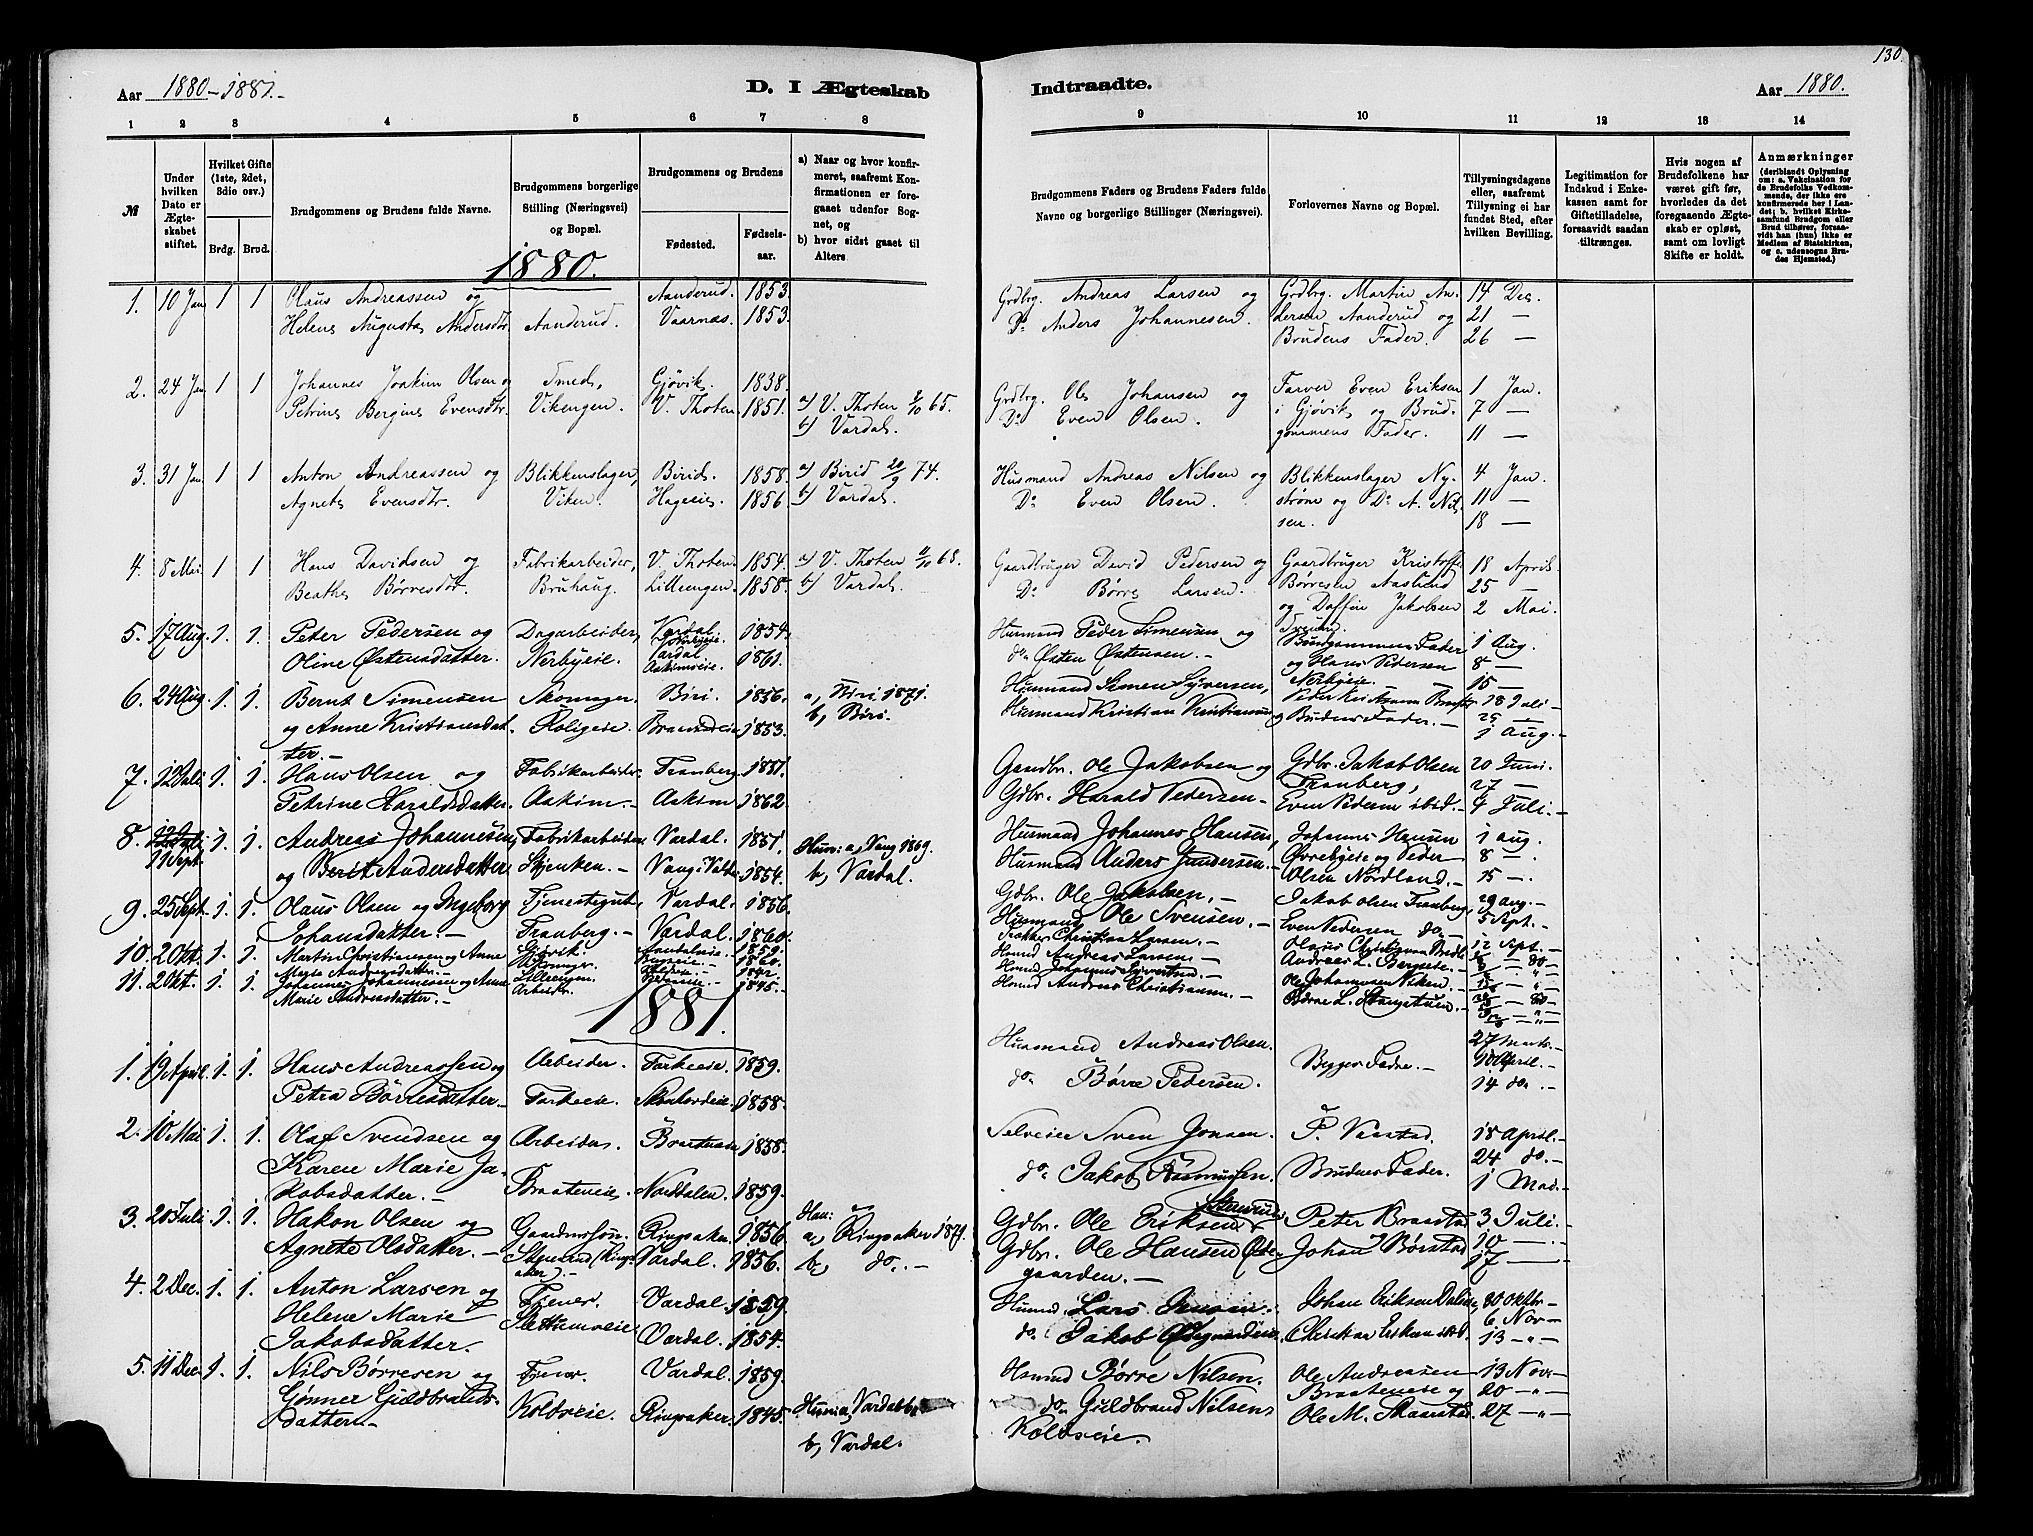 130.
Aar 1880-1881.-
D. I Ægteskab
Indtraadte.
Aar 1880.
1 2 3 4 5 6 7 8
9 10 11 12 13 14
№
Under hvilken Dato er Ægteskabet stiftet.
Hvilket Gifte (1ste, 2det, 3die osv.)
Brdg. Brud.
Brudgommens og Brudens fulde Navne.
Brudgommens borgerlige Stilling (Næringsvei) og Bopæl.
Brudgommens og Brudens
Fødested.
Fødsels-aar.
a) Naar og hvor konfirmeret, saafremt Konfirmationen er foregaaet udenfor Sognet, og
b) hvor sidst gaaet til Alters.
Brudgommens Faders og Brudens Faders fulde Navne og borgerlige Stillinger (Næringsvei).
Forlovernes Navne og Bopæl.
Tillysningsdagene eller, saafremt Tillysning ei har fundet Sted, efter hvilken Bevilling.
Legitimation for Indskud i Enkekassen samt for Giftetilladelse, forsaavidt saadan tiltrænges.
Hvis nogen af Brudefolkene har været gift før, hvorledes da det foregaaende Ægteskab er opløst, samt om lovligt Skifte er holdt.
Anmærkninger (deriblandt Oplysning om: a. Vakcination for de Brudefolks Vedkommende, der ikke ere konfirmerede her i Landet; b. hvilket Kirkesamfund Brudgom eller Brud tilhører, forsaavidt han (hun) ikke er Medlem af Statskirken, og c. udensogns Brudes Hjemsted.)
1880.
1. 10 Jan 1 1 Olaus Andreassen og Aanderud. 1853. Grdbrg. Andreas Larsen og Grdbrg. Martin An- 14 Des.
Helene Augusta Andersdtr. Aanderud. Vaarnæs. 1853. Do Anders Johannesen. dersen Aanderud og 21 —
Brudens Fader. 26 —
2. 24 Jan 1 1 Johannes Joakim Olsen og Smed, Gjøvik. 1838. Grdbrg. Ole Johansen og Farver Even Eriksen 1 Jan.
Petrine Bergine Evensdtr. Vikengen. V. Thoten. 1851. a) V. Thoten 65. Do Even Olsen. i Gjøvik og Brud- 7 —
b) Vardal. gommens Fader. 11 —
3. 31 Jan 1 1 Anton Andreassen og Blikkenslager, Birid. 1858. a) Birid 20/9 74. Husmand Andreas Nilsen og Blikkenslager Ny- 4 Jan.
Agnete Evensdtr. Viken. Hageeie. 1856 b) Vardal. Do Even Olsen. strøm og Do A. Nil- 11 —
sen. 18 —
4. 8 Mai 1 1 Hans Davidsen og Fabrikarbeider, V. Thoten. 1854. a) V. Thoten 68. Gaardbruger David Pedersen og Gaardbruger Kristoffer 18 April
Beathe Børresdtr. Bruhaug. Lillengen. 1858. b) Vardal. Do Børre Larsen. Børresen Aaslund 25 —
og Jakobsen 2 Mai.
5. 17 Aug. 1. 1. Peter Pedersen og Dagarbeider, Vardal 1854. Husmand Peder Simensen og Brudgommens Fader 1 Aug.
Oline Østensdatter. Nerbyeie. Vardal Askimeie. 1861. do. Østen Østensen.— og Hans Pedersen 8 —
Nerbyeie.— 15 —
6. 24 Aug. 1. 1. Bernt Simensen Skomager. Biri. 1856. a, Biri 1871. Husmand Simen Syversen, 18 Juli
og Anne Kristiansdat- 1853. b, Biri. Husmand Kristian Kristiansen og Brudens Fader.— 25 —
ter.— 1 Aug.—
7. 12 Juli 1. 1. Hans Olsen og Fabrikarbeider Tranberg 1851. Gaardbr. Ole Jakobsen og Gdbr. Jakob Olsen 20 Juni.
Petrine Haraldsdatter. Aaskim.— Aaskim 1862. Gdbr. Harald Pedersen— Tranberg, 27 —
Even Pedersen ibid.— 4 Juli.—
8. 11 Sept. 1. 1. Andreas Johannesen Fabrikarbeider Vardal. 1851. Hun: a, Vang 1869. Husmand Johannes Hansen, Johannes Hansen 1 Aug.
og Berit Andersdatter Skjenken.— Vang i Valdr. 1854. b, Vardal. Husmand Anders Gundersen.— Øvrebyeie og Peder 8 —.
Olsen Nordland.— 15 —.
9. 25 Sept. 1. 1. Olaus Olsen og Ingeborg Tjenestegut Vardal. 1856. Gdbr. Ole Jakobsen, Jakob Olsen Tranberg, 29 Aug.—
Johansdatter.— Tranberg.— Vardal. 1860. Husmand Ole Svensen.— Even Pedersen do— 5 Sept.—
12 Sept.—
10. 2 Okt. 1. 1. Martin Christiansen og Anne Gjøvik. 1859. Christian Larsen.— Olaus Christiansen
Marie Andreasdatter.— 1860. Husmd Andreas Larsen— Andreas L. Bergseie.—
11. 2 Okt. 1 1. Johannes Johannesen og Anne Lillengen 1842. Husmd Johannes Syversen.— Ole Johannesen Viken.—
Marie Andreasdatter.— Arbeider. 1845.— Husmd Andreas Christiansen.— Børre L. Stangstuen.—
1881.
1. 19 April. 1. 1. Hans Andreassen og Arbeider. Farkeeie. 1859. Husmand Andreas Olsen. Begges Fædre.— 27 Marts.—
Petra Børresdatter— Farkeeie. 1858. do. Børre Pedersen. 10 April.
14 do.—
2. 10 Mai 1. 1. Olaf Svendsen og Arbeider. 1858. Selveier Sven Jonsen. P. 18 April.—
Karen Marie Ja- Braateneie. Norddalen. 1859. do. Jakob Rasmussen. Brudens Fader. 24 do.—
kobsdatter.— 1 Mai.—
3. 20 Juli 1. 1. Hakon Olsen og Gaardmandssøn Ringsaker. 1856. Han: a, Ringsaker 1871. Gdbr. Ole Eriksen Stensrud, Peter Braastad 3 Juli.—
Agnete Olsdatter.— Stensrud (Rings- Vardal. 1856. b, do.— Gdbr. Ole Hansen Øde- Johan Børstad 10 —
aker).— gaarden.— 17 —
4. 2 Dec. 1. 1. Anton Larsen og Tjener. Vardal. 1859. Husmd. Lars Jensen. Johan Eriksen 30 Oktbr—
Helene Marie Slettumseie Vardal. 1854. do. Jakob Ødegaardeie. Christian Eriksen ibid. 6 Nov—
Jakobsdatter. 13 — " —
5. 11 Dec. 1. 1. Nils Børresen og Tjener. Vardal. 1859. Husmd Børre Nilsen. Ole Andreassen 13 Nov.—
Gønner Guldbrands- Koldveie. Ringsaker. 1845. Hun: a, Vardal do. Guldbrand Nilsen, Braateneie og 20 — " —
datter.— b, Vardal. Koldveeie. Ole M. Skaarstad 27 — " —